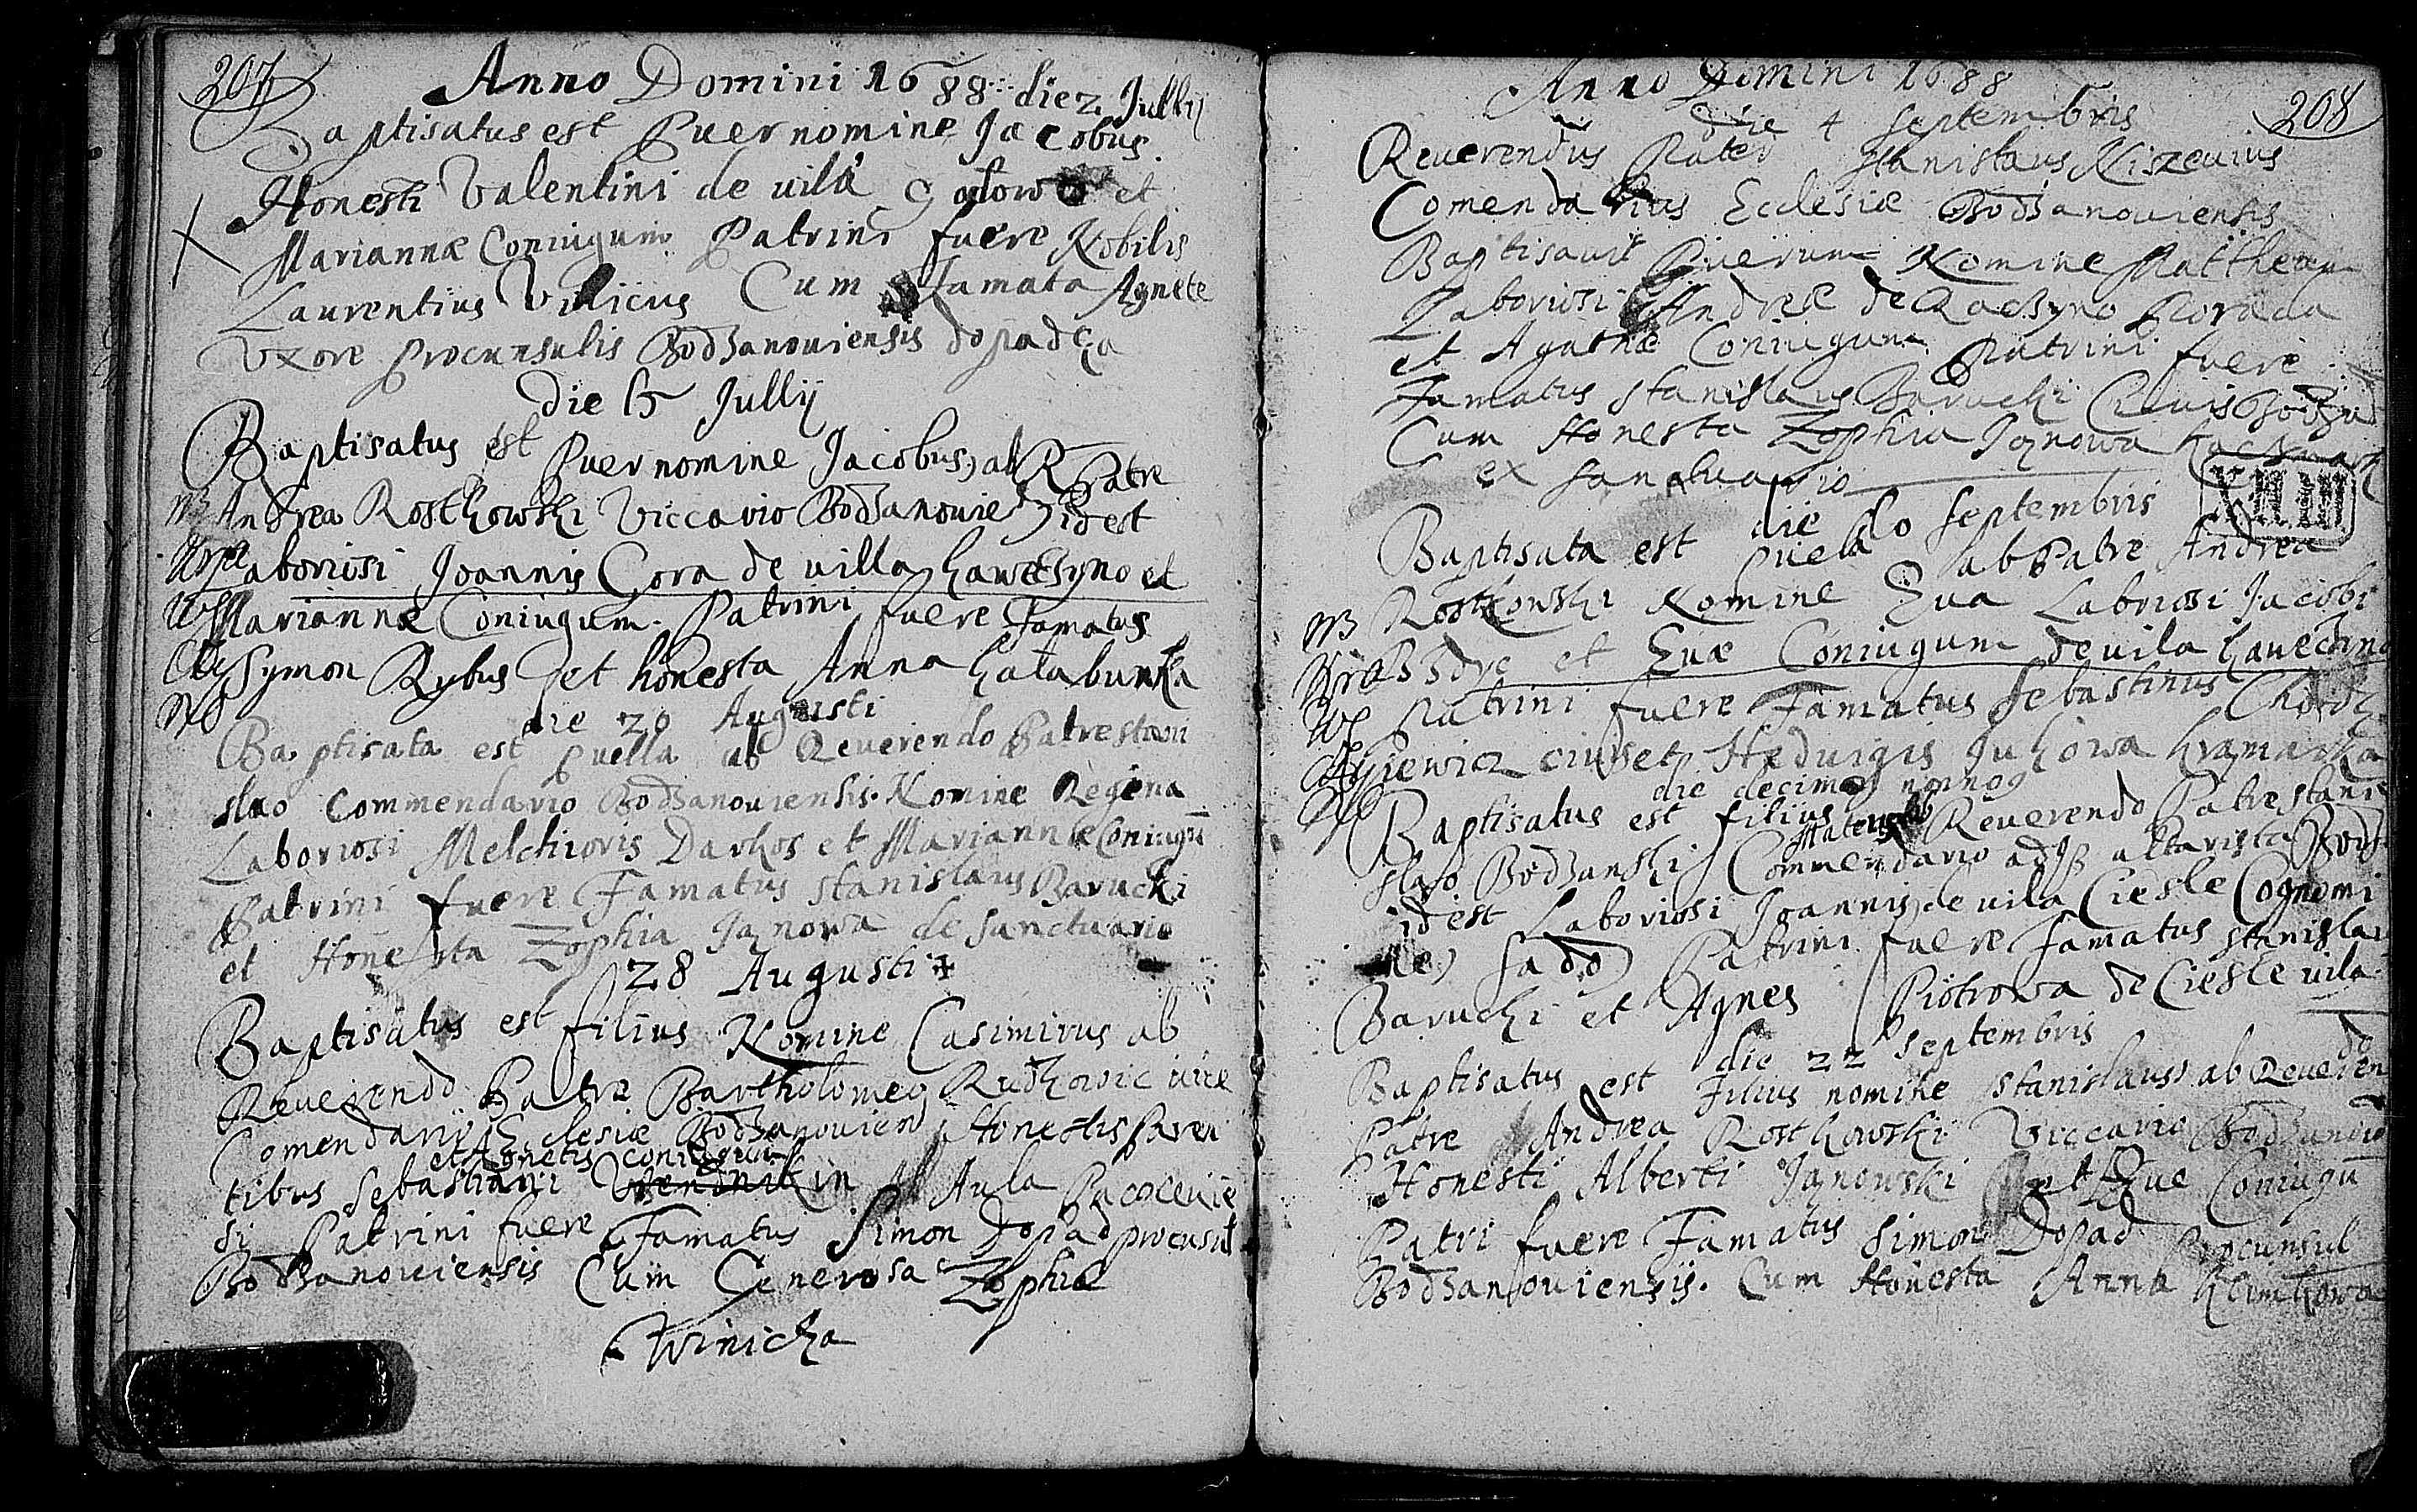 207
Anno Domini 1688 die 2 Jullij
Baptisatus est Puer nomine Jacobus
Honesti Valentini de vila et
Mariannæ Coniugum Patrini fuere Nobilis
Laurentius Vilicus Cum Famata Agnete
Vxore Proconsulis Bodzanouiensis dopadką
die 15 Jullij
Baptisatus est Puer nomine Jacobus, ab R Patre
Andrea Rostkowski Viccario Bodzanouie idest
Laboriosi Joannis Cora de villa et
Mariannæ Coniugum. Patrini fuere Famatus
Symon Rybus et honesta Anna
die 20 Augusti
Baptisata est puella ab Reuerendo Patre stani
slao Commendario Bodzanouiensis. Nomine Regina
Laboriosi Melchioris Darkos et Mariannæ Coniugū
Patrini fuere Famatus stanislaus Barucki
et Honesta Zophia Janowa de sanctuario
28 Augusti
Baptisatus est filius Nomine Casimirus ab
Reuerendo Patre Bartholomeo vice
Comendarij Ecclesiæ Bodzanouien Honestis Paren
et Agnetis coniugum
tibus Sebastiani in Aula
si Patrini fuere Famatus Simon Dopad procunsul
Bodzanouiensis Cum Generosa Zophia
Winicka
Anno Domini 1688
208
die 4 Septembris
Reuerendus Pater stanislaus
Comendarius Ecclesiæ Bodzanouiensis
Baptisauit Puerum Nomine Mattheum
Laboriosi Andreæ de
et Agathæ Coniugum Patrini fuere
Famatus stanislaus Barucki Ciuis
Cum Honesta Zophia Janowa
ex
XLIII
die 10 Septembris
Baptisata est puela ab Patre Andrea
Rostkowski Nomine Eua Laboriosi Jacobi
et Euæ Coniugum de vila
Patrini fuere Famatus Sebastinus
ciuis et Heduigis kramarka
die decimo nonno
Baptisatus est filius Mateus ab Reuerendo Patre stani
slao Bodzanski Commendario altarista
idest Laboriosi Joannis de vila Ciesle Cognomi
ne) Sado Patrini fuere Famatus stanislaus
Barucki et Agnes Piotrowa de Ciesle vila
die 22 Septembris
Baptisatus est Filius nomine stanislaus ab Reueren
do
Patre Andrea Rostkowski Viccario
Honesti Alberti Janowski et Euæ Coniugū
Patri fuere Famatus Simon Dopad Procunsul
Bodzanouiensis. Cum Honesta Anna